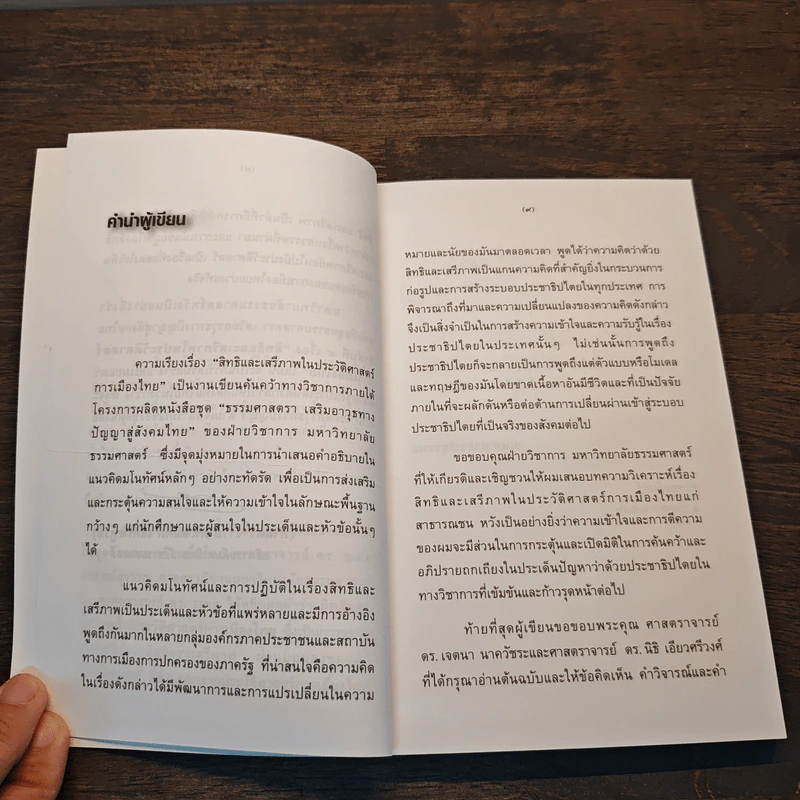 คำนำผู้เขียน
ความเรียงเรื่อง “สิทธิและเสรีภาพในประวัติศาสตร์
การเมืองไทย” เป็นงานเขียนค้นคว้าทางวิชาการภายใต้
โครงการผลิตหนังสือชุด “ธรรมศาสตรา เสริมอาวุธทาง
ปัญญาสู่สังคมไทย” ของฝ่ายวิชาการ มหาวิทยาลัย
ธรรมศาสตร์ ซึ่งมีจุดมุ่งหมายในการนำเสนอคำอธิบายใน
แนวคิดมโนทัศน์หลักๆ อย่างกะทัดรัด เพื่อเป็นการส่งเสริม
และกระตุ้นความสนใจและให้ความเข้าใจในลักษณะพื้นฐาน
กว้างๆ แก่นักศึกษาและผู้สนใจในประเด็นและหัวข้อนั้นๆ
ได้
แนวคิดมโนทัศน์และการปฏิบัติในเรื่องสิทธิและ
เสรีภาพเป็นประเด็นและหัวข้อที่แพร่หลายและมีการอ้างอิง
พูดถึงกันมากในหลายกลุ่มองค์กรภาคประชาชนและสถาบัน
ทางการเมืองการปกครองของภาครัฐ ที่น่าสนใจคือความคิด
ในเรื่องดังกล่าวได้มีพัฒนาการและการแปรเปลี่ยนในความ
(๙)
หมายและนัยของมันมาตลอดเวลา พูดได้ว่าความคิดว่าด้วย
สิทธิและเสรีภาพเป็นแกนความคิดที่สำคัญยิ่งในกระบวนการ
ก่อรูปและการสร้างระบอบประชาธิปไตยในทุกประเทศ การ
พิจารณาถึงที่มาและความเปลี่ยนแปลงของความคิดดังกล่าว
จึงเป็นสิ่งจำเป็นในการสร้างความเข้าใจและความรับรู้ในเรื่อง
ประชาธิปไตยในประเทศนั้นๆ ไม่เช่นนั้นการพูดถึง
ประชาธิปไตยก็จะกลายเป็นการพูดถึงแต่ตัวแบบหรือโมเดล
และทฤษฎีของมันโดยขาดเนื้อหาอันมีชีวิตและที่เป็นปัจจัย
ภายในที่จะผลักดันหรือต่อต้านการเปลี่ยนผ่านเข้าสู่ระบอบ
ประชาธิปไตยที่เป็นจริงของสังคมต่อไป
ขอขอบคุณฝ่ายวิชาการ มหาวิทยาลัยธรรมศาสตร์
ที่ให้เกียรติและเชิญชวนให้ผมเสนอบทความวิเคราะห์เรื่อง
สิทธิและเสรีภาพในประวัติศาสตร์การเมืองไทยแก่
สาธารณชน หวังเป็นอย่างยิ่งว่าความเข้าใจและการตีความ
ของผมจะมีส่วนในการกระตุ้นและเปิดมิติในการค้นคว้าและ
อภิปรายถกเถียงในประเด็นปัญหาว่าด้วยประชาธิปไตยใน
ทางวิชาการที่เข้มข้นและก้าวรุดหน้าต่อไป
ท้ายที่สุดผู้เขียนขอขอบพระคุณ ศาสตราจารย์
ดร. เจตนา นาควัชระและศาสตราจารย์ ดร. นิธิ เอียวศรีวงศ์
ที่ได้กรุณาอ่านต้นฉบับและให้ข้อคิดเห็น คำวิจารณ์และคำ